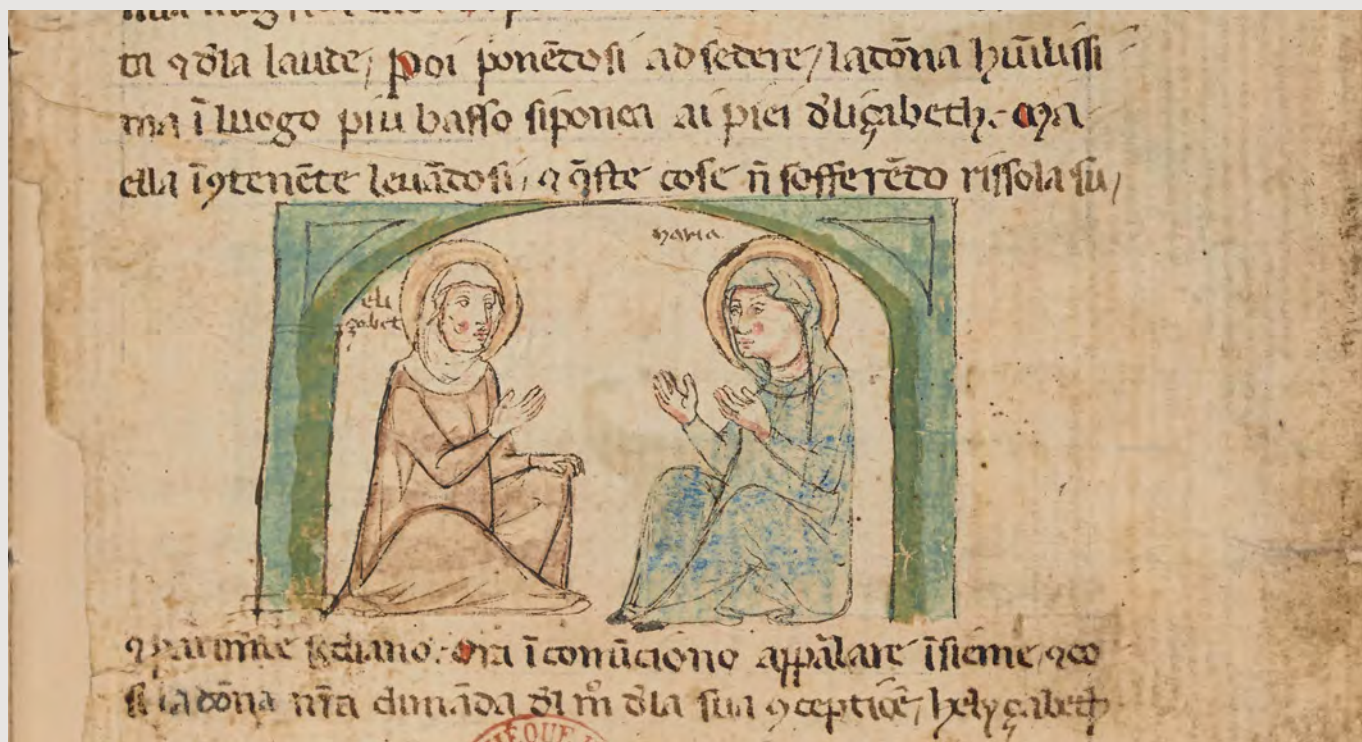 ti ⁊ dła laude, poi ponēdosi ad sedere, la dōna hūilissi
ma ī luogo piu basso si ponea ai piei d'liçabeth. Ma
ella īꝯtenēte levādosi, ⁊ q̄ste cose n̄ sofferēdo riſſola su,
maria
eli
çabet
sediano. Ora īcomīciono a ꝑlare īsieme, ⁊ co
si la dōna nr̄a dimāda dl mº dła sua ꝯceptiōe, helyçabeth
HÈQUE